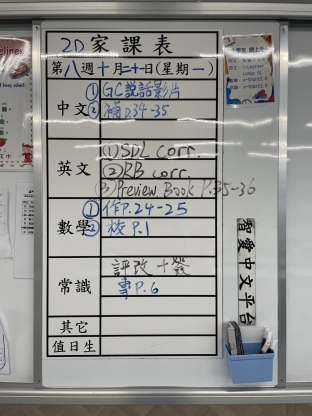 2D 家課表
第八週十月二十一日(星期一)
中文
①GC說話影片
②補P.34-35
英文
(1)SDL corr.
(2)RB corr.
(3)Preview Book P.35-36
數學
①作P.24-25
②校P.1
常識
評改十發
專P.6
其它
值日生
智愛中文平台